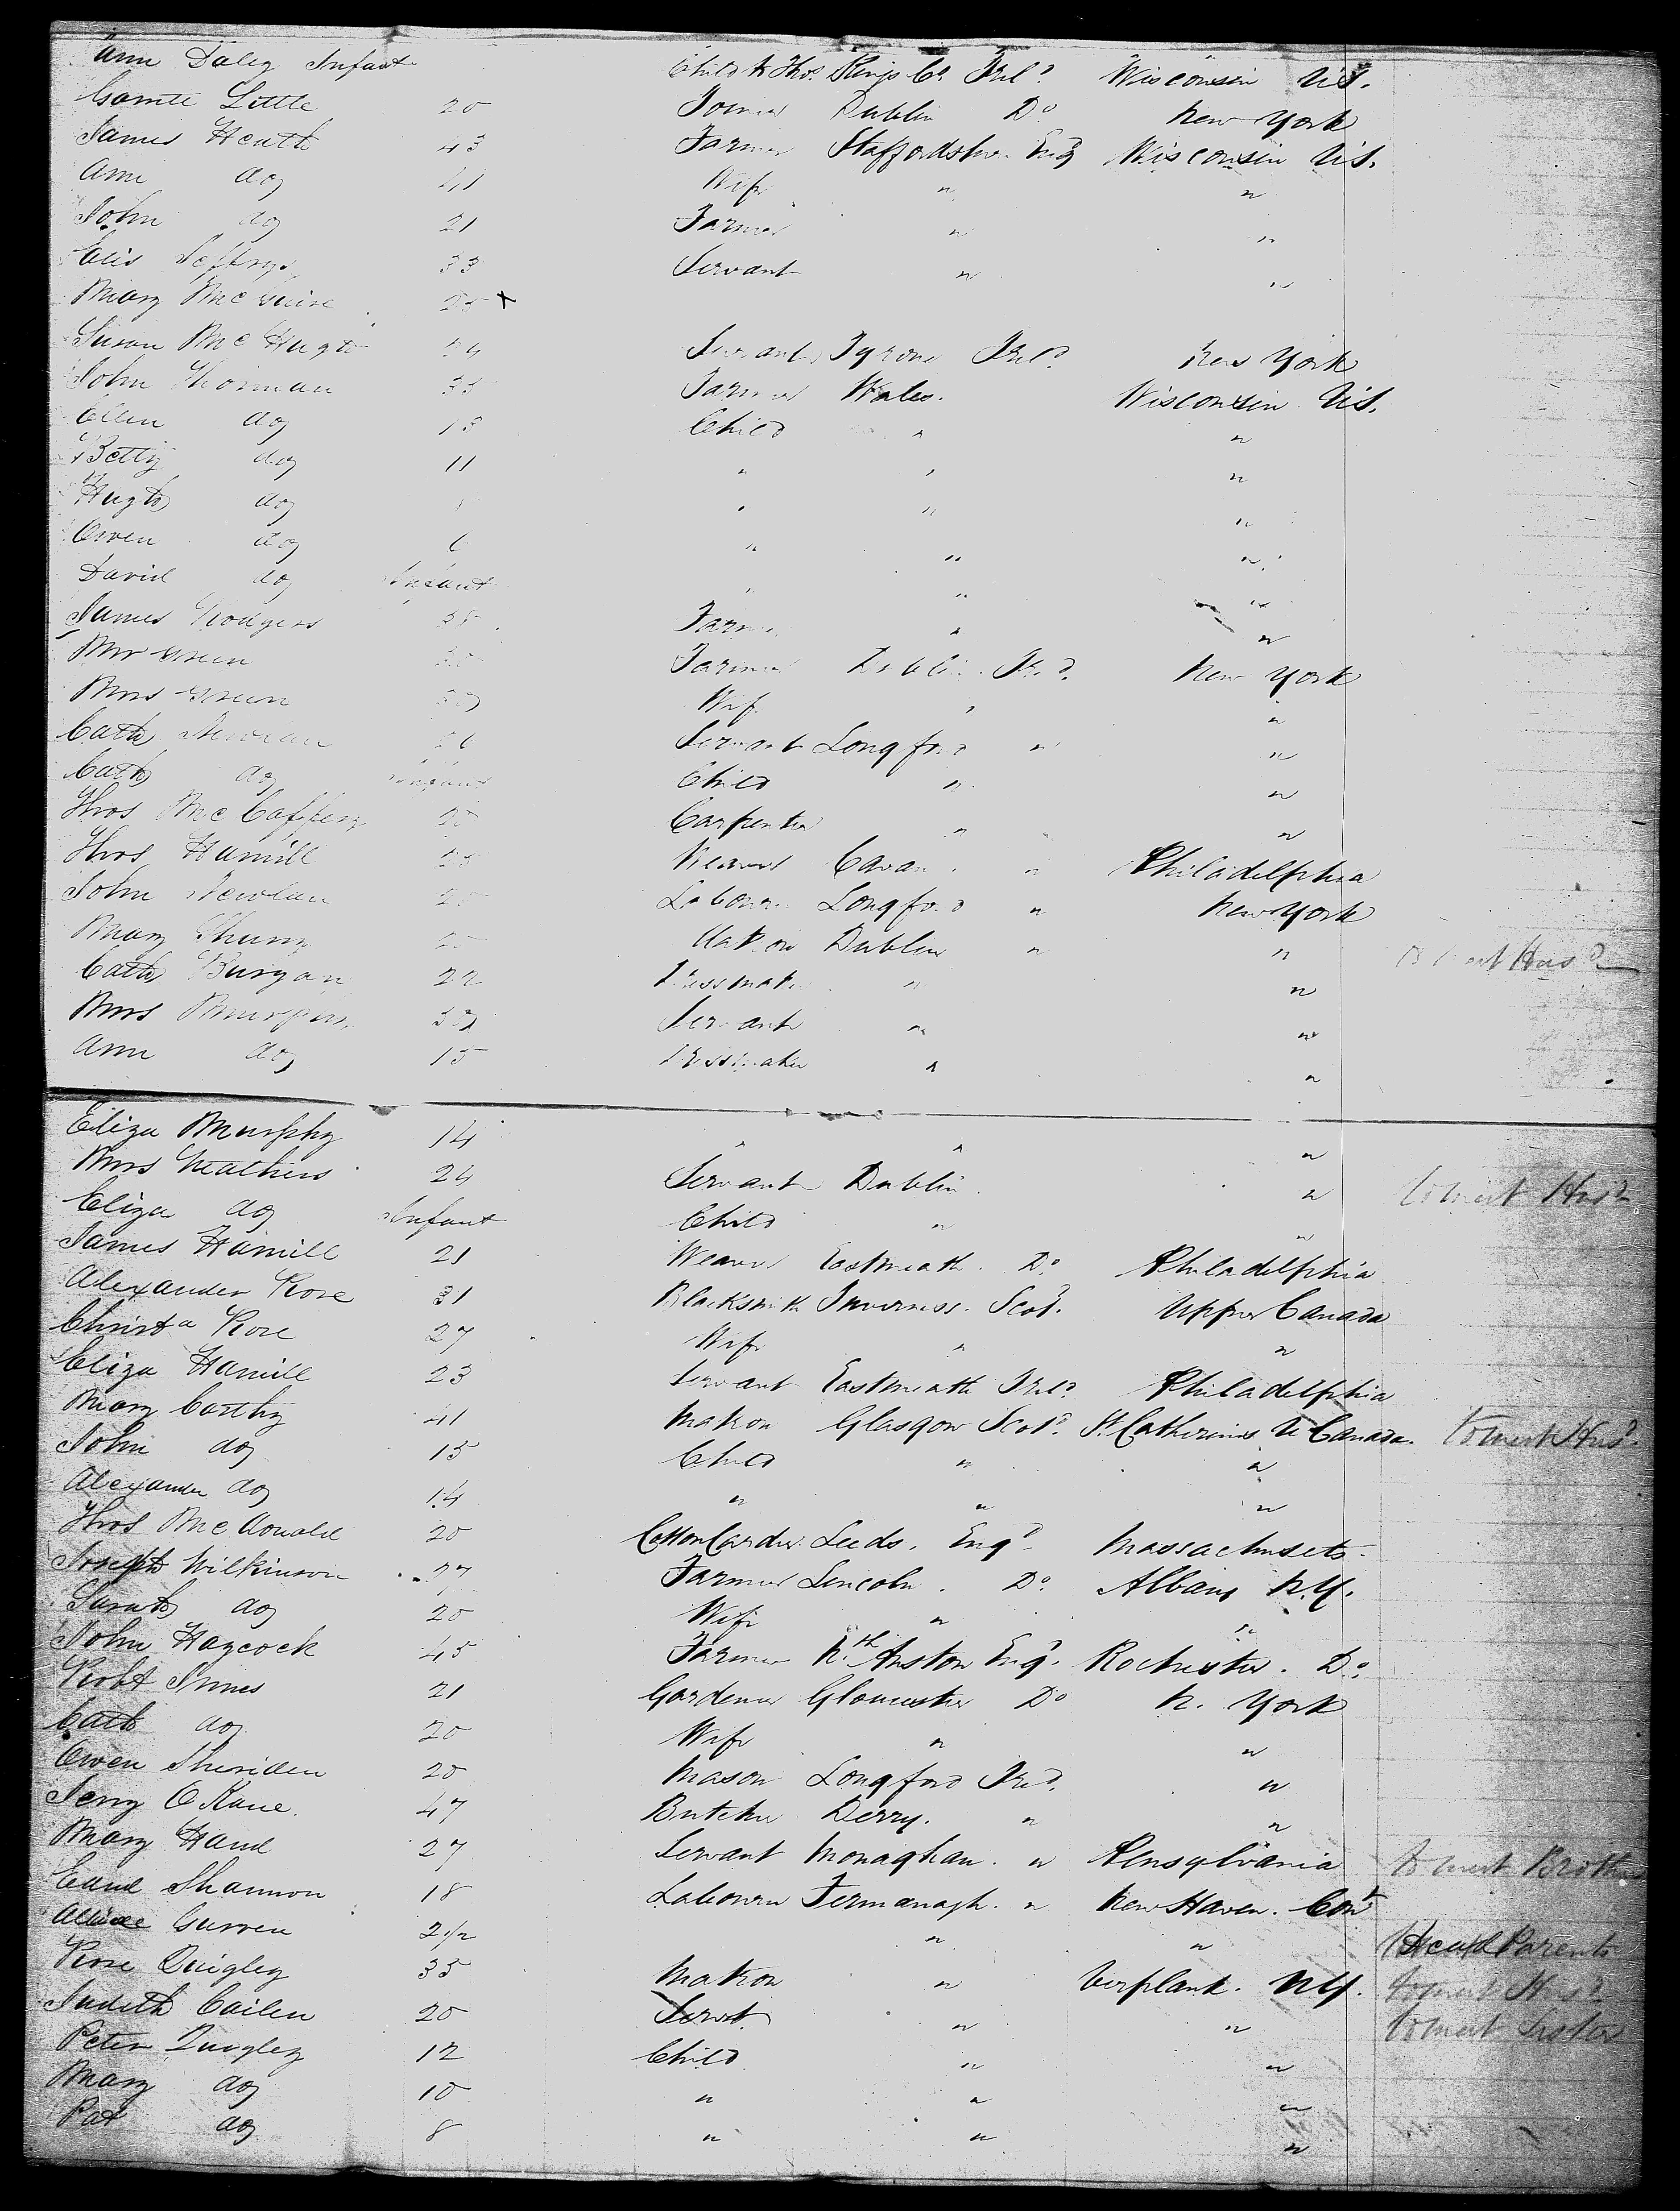 Ann Daley Infant Child to Thos Kings Co. Irel.d Wisconsin U.S.
Little 20 Joiner Dublin Do New York
James Heath 43 Farmer Staffordshire Eng Wisconsin U.S.
Ann do 41 Wife " "
John do 21 Farmer " "
Elis Jeffrys 33 Servant " "
Mary McGuire 25 x
Susan McHugh 24 Servant Tyrone Irel.d New York
John 35 Farmer Wales. Wisconsin U.S.
Ellen do 13 Child " "
Betty do 11 " " "
Hugh do " " "
Owen do 6 " " "
David do Infant " " "
James Rodgers 38 Farmer " "
Mr Green 30 Farmer Dublin Ire.d New York
Mrs Green 30 Wife " "
Cath Newlan 26 Servant Longford " "
Cath do Infant Child " "
Thos McCaffery 25 Carpenter " "
Thos Hamill 23 Weaver Cavan " Philadelphia
John Newlan 25 Labourer Longford " New York
Mary Matron Dublin " " to meet Husd
Cath 22 Dressmaker " "
Mrs 50 Servant " "
Ann do 15 Dressmaker " "
Eliza Murphy 14 " " "
Mrs Mathews 24 Servant Dublin " to meet Husd
Eliza do Infant Child " "
James Hamill 21 Weaver Eastmeath. Do. Philadelphia
Alexander Rose 31 Blacksmith Inverness. Scot. Upper Canada
Christa Rose 27 Wife " "
Eliza Hamill 23 Servant Eastmeath Irel.d Philadelphia
Mary Carthy 41 Matron Glasgow Scotd. St. Catherines U Canada. to meet Husd.
John do 15 Child " "
Alexander do 14 " " "
Thos McDonald 20 Cotton Carder Leeds. Engd Massachusets.
Joseph Wilkinson 27 Farmer Lincoln. Do. Albany N.Y.
Sarah do 20 Wife " "
John Haycock 45 Farmer Nth. Anston Engd. Rochester. Do.
Robt Innes 21 Gardener Gloucester Do N. York
Cath do 20 Wife " "
Owen Sheriden 20 Mason Longford Ired. "
Jerry O Kane. 47 Butcher Derry. " "
Mary Hand 27 Servant Monaghan. " Pensylvania to meet Brother
Edmd Shannon 18 Labourer Fermanagh. " New Haven. Cont
Curren 2 1/2 " " to meet Parents
Rose Quigley 35 Matron " Verplank. NY. to meet Husd
Judith Cailen 20 Servt. " " to meet Sister
Peter Quigley 12 Child " "
Mary do 10 " " "
Pat do 8 " " "